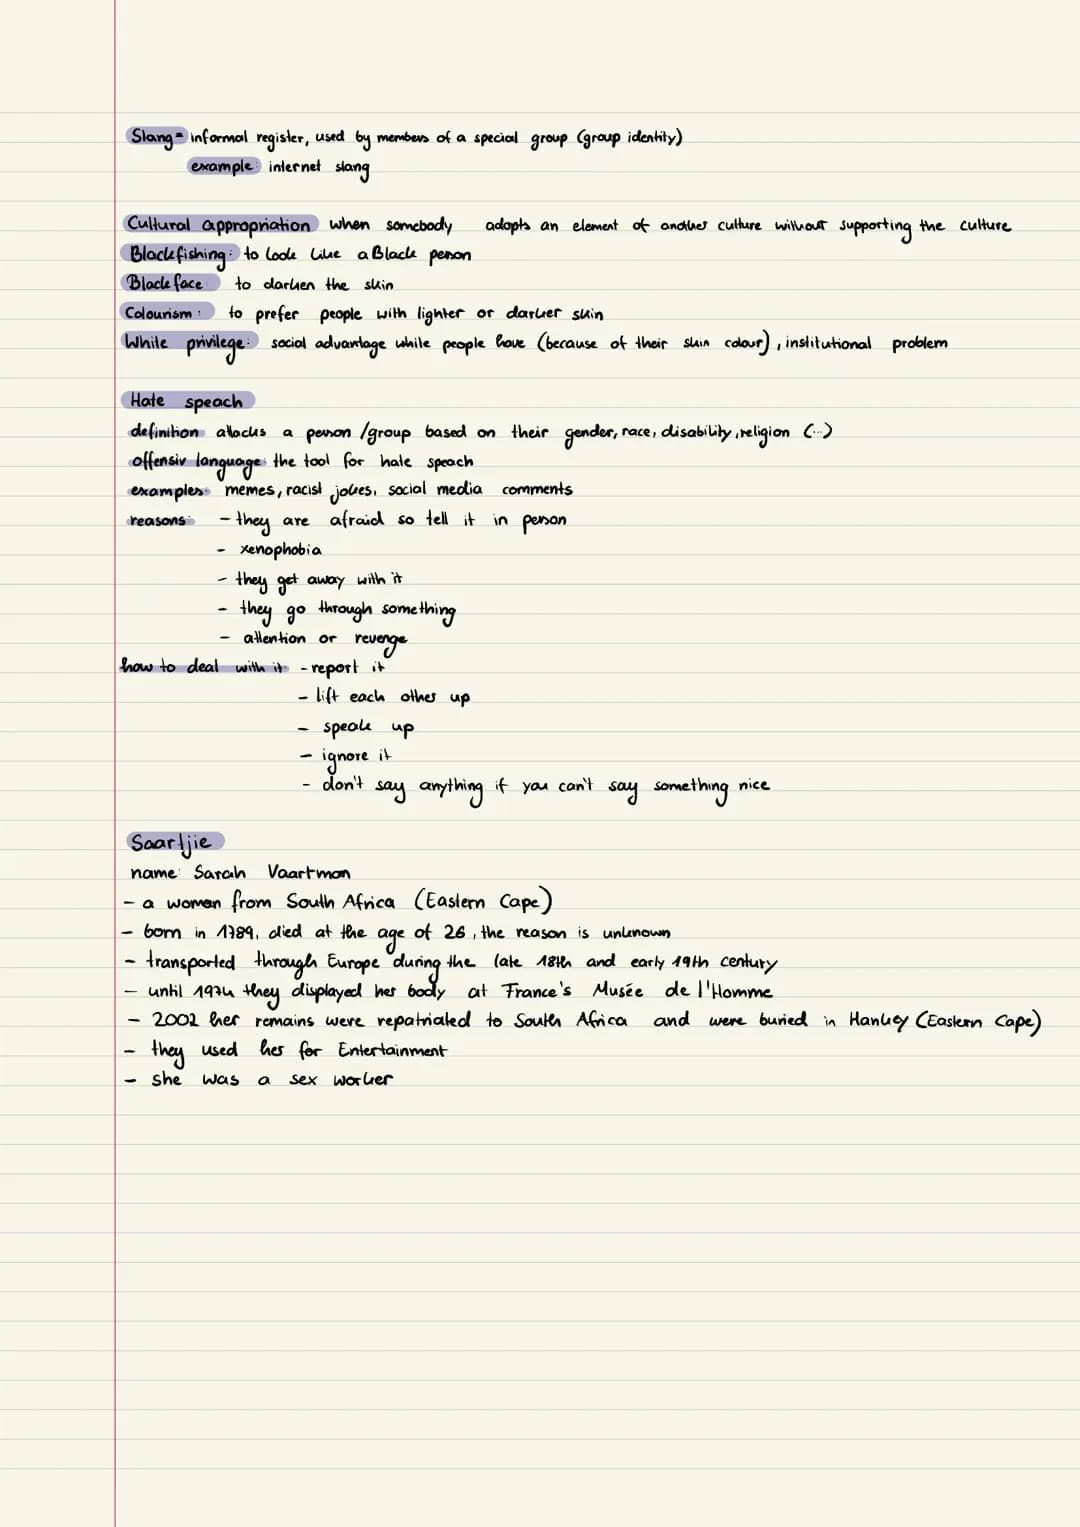 Slang = informal register, used by members of a special group (group identity)
example: internet slang
Cultural appropriation when somebody adopts an element of another culture without supporting the culture
Blackfishing: to look like a Black person
Blackface to darken the skin
Colourism: to prefer people with lighter or darker skin
White privilege: social advantage white people have (because of their skin colour), institutional problem
Hate speach
definition attacks a person/group based on their gender, race, disability, religion (...)
offensiv language: the tool for hate speach
examples: memes, racist jokes, social media comments
reasons: - they are afraid so tell it in person
- xenophobia
- they get away with it
- they go through something
- attention or revenge
how to deal with it - report it
- lift each other up
- speak up
- ignore it
- don't say anything if you can't say something nice
Saartjie
name: Sarah Vaartman
- a woman from South Africa (Eastern Cape)
- born in 1789, died at the age of 26, the reason is unknown
- transported through Europe during the late 18th and early 19th century
- until 1974 they displayed her body at France's Musée de l'Homme
- 2002 her remains were repatriated to South Africa and were buried in Hankey (Eastern Cape)
- they used her for Entertainment
- she was a sex worker